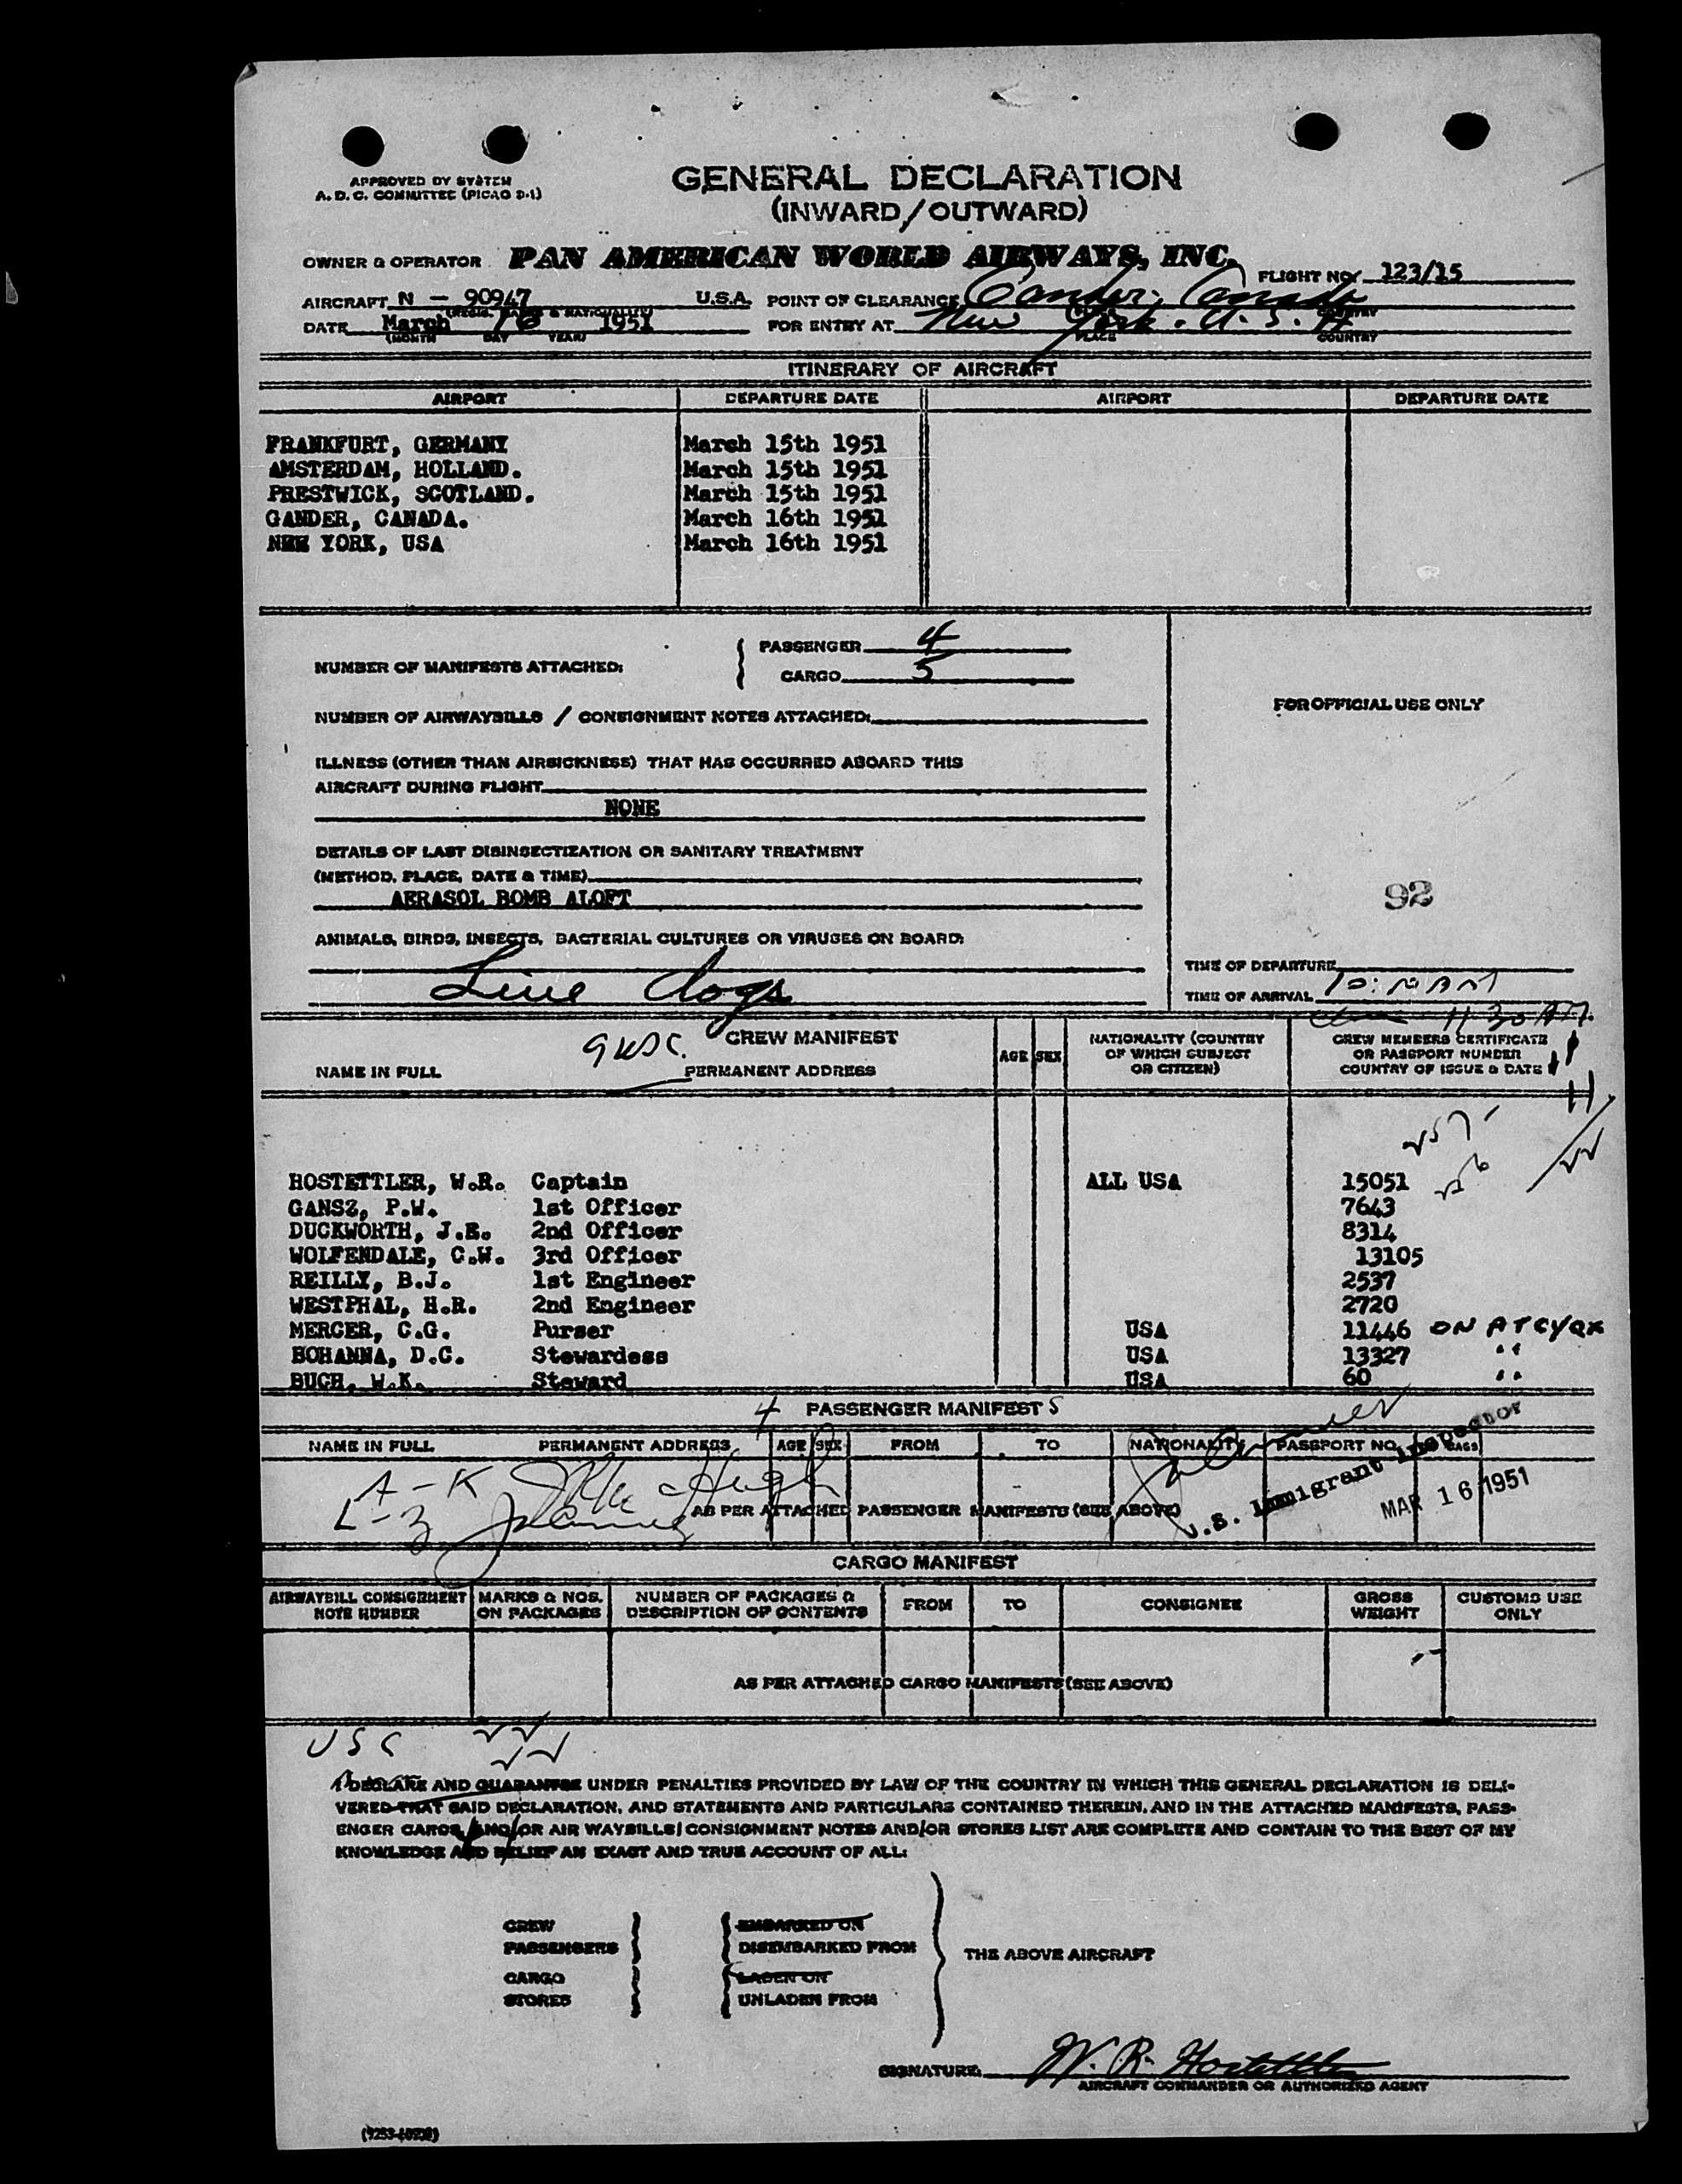 APPROVED BY SYSTEM
A. D. C. COMMITTEE (PICAO D-1)
GENERAL DECLARATION
(INWARD/OUTWARD)
OWNER & OPERATOR PAN AMERICAN WORLD AIRWAYS, INC.
FLIGHT NO. 123/15
AIRCRAFT N - 90947 U.S.A. POINT OF CLEARANCE Gander, Canada
(REGIS. MARKS & NATIONALITY) PLACE COUNTRY
DATE March 16 1951 FOR ENTRY AT New York. U.S.A
(MONTH DAY YEAR) PLACE COUNTRY
ITINERARY OF AIRCRAFT
AIRPORT DEPARTURE DATE AIRPORT DEPARTURE DATE
FRANKFURT, GERMANY March 15th 1951
AMSTERDAM, HOLLAND. March 15th 1951
PRESTWICK, SCOTLAND. March 15th 1951
GANDER, CANADA. March 16th 1951
NEW YORK, USA March 16th 1951
NUMBER OF MANIFESTS ATTACHED: PASSENGER 4
CARGO 5
FOR OFFICIAL USE ONLY
NUMBER OF AIRWAYBILLS / CONSIGNMENT NOTES ATTACHED:
ILLNESS (OTHER THAN AIRSICKNESS) THAT HAS OCCURRED ABOARD THIS
AIRCRAFT DURING FLIGHT
NONE
DETAILS OF LAST DISINSECTIZATION OR SANITARY TREATMENT
(METHOD, PLACE, DATE & TIME)
AERASOL BOMB ALOFT
92
ANIMALS, BIRDS, INSECTS, BACTERIAL CULTURES OR VIRUSES ON BOARD:
Live dogs
TIME OF DEPARTURE
TIME OF ARRIVAL
11 30 AM
CREW MANIFEST
NAME IN FULL PERMANENT ADDRESS AGE SEX NATIONALITY (COUNTRY OF WHICH SUBJECT OR CITIZEN) CREW MEMBERS CERTIFICATE OR PASSPORT NUMBER COUNTRY OF ISSUE & DATE
HOSTETTLER, W.R. Captain ALL USA 15051
GANSZ, P.W. 1st Officer 7643
DUCKWORTH, J.E. 2nd Officer 8314
WOLFENDALE, C.W. 3rd Officer 13105
REILLY, B.J. 1st Engineer 2537
WESTPHAL, H.R. 2nd Engineer 2720
MERCER, C.G. Purser USA 11446 ON AT CYQX
BOHANNA, D.C. Stewardess USA 13327 "
BUCH, W.K. Steward USA 60 "
4 PASSENGER MANIFEST S
NAME IN FULL PERMANENT ADDRESS AGE SEX FROM TO NATIONALITY PASSPORT NO. BAGS
A - K
L - Z
AS PER ATTACHED PASSENGER MANIFESTS (SEE ABOVE)
U.S. Immigrant Inspector
MAR 16 1951
CARGO MANIFEST
AIRWAYBILL CONSIGNMENT NOTE NUMBER MARKS & NOS. ON PACKAGES NUMBER OF PACKAGES & DESCRIPTION OF CONTENTS FROM TO CONSIGNEE GROSS WEIGHT CUSTOMS USE ONLY
AS PER ATTACHED CARGO MANIFESTS (SEE ABOVE)
USC
I DECLARE AND GUARANTEE UNDER PENALTIES PROVIDED BY LAW OF THE COUNTRY IN WHICH THIS GENERAL DECLARATION IS DELI-
VERED THAT SAID DECLARATION, AND STATEMENTS AND PARTICULARS CONTAINED THEREIN, AND IN THE ATTACHED MANIFESTS, PASS-
ENGER CARGO, AND/OR AIR WAYBILLS/CONSIGNMENT NOTES AND/OR STORES LIST ARE COMPLETE AND CONTAIN TO THE BEST OF MY
KNOWLEDGE AND BELIEF AN EXACT AND TRUE ACCOUNT OF ALL:
CREW EMBARKED ON
PASSENGERS DISEMBARKED FROM
THE ABOVE AIRCRAFT
CARGO LADEN ON
STORES UNLADEN FROM
SIGNATURE: W. R. Hostettler
AIRCRAFT COMMANDER OR AUTHORIZED AGENT